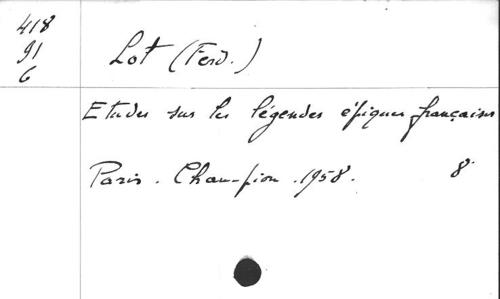 418
91
6
Lot (Ferd.)
Etudes sur les légendes épiques françaises
Paris. Champion. 1958. 8°